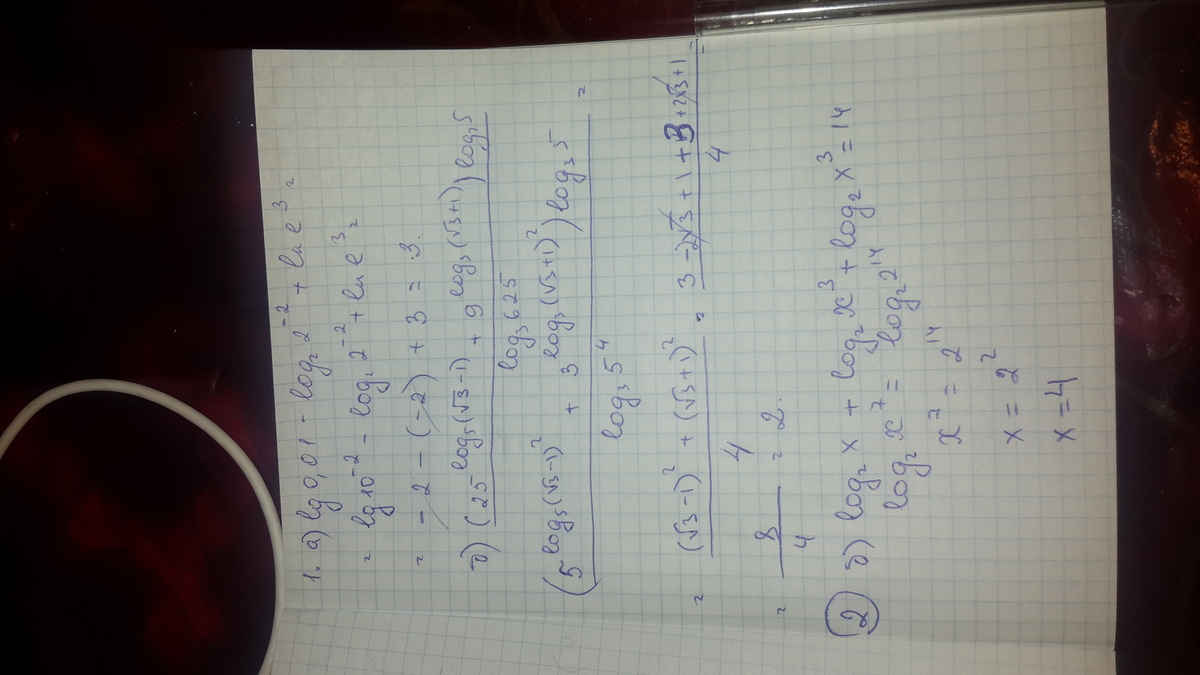 1. а) lg 0,01 - log₂ 2⁻² + ln e³ =
= lg 10⁻² - log₂ 2⁻² + ln e³ =
= -2 - (-2) + 3 = 3.
б) (25^log₅(√3-1) + 9^log₃(√3+1)) log₃ 5
log₃ 625
(5^log₅(√3-1)² + 3^log₃(√3+1)²) log₃ 5 =
log₃ 5⁴
= (√3-1)² + (√3+1)² = 3 - 2√3 + 1 + 3 + 2√3 + 1 =
4 4
= 8/4 = 2.
2 б) log₂ x + log₂ x³ + log₂ x³ = 14
log₂ x⁷ = log₂ 2¹⁴
x⁷ = 2¹⁴
x = 2²
x = 4